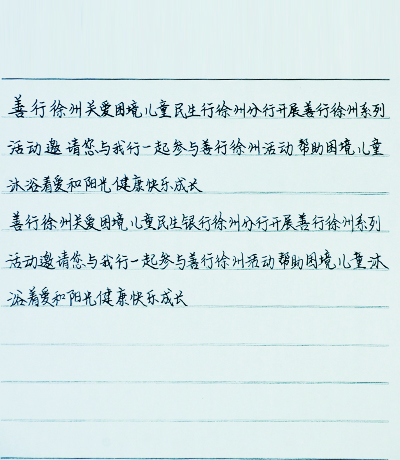 善行徐州关爱困境儿童民生行徐州分行开展善行徐州系列
活动邀请您与我行一起参与善行徐州活动帮助困境儿童
沐浴着爱和阳光健康快乐成长
善行徐州关爱困境儿童民生银行徐州分行开展善行徐州系列
活动邀请您与我行一起参与善行徐州活动帮助困境儿童沐
浴着爱和阳光健康快乐成长